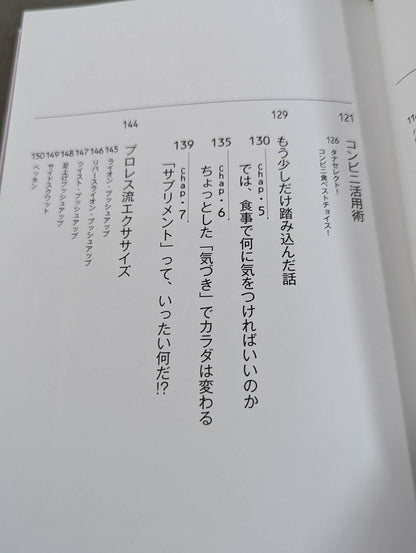 121
コンビニ活用術
126
タナセレクト!
コンビニ食ベストチョイス!
129
もう少しだけ踏み込んだ話
130
Chap・5
では、食事で何に気をつければいいのか
135
Chap・6
ちょっとした「気づき」でカラダは変わる
139
Chap・7
「サプリメント」って、いったい何だ!?
144
プロレス流エクササイズ
145
ライオン・プッシュアップ
146
リバースライオン・プッシュアップ
147
ツイスト・プッシュアップ
148
足上げプッシュアップ
149
サイドスクワット
150
ペッタン